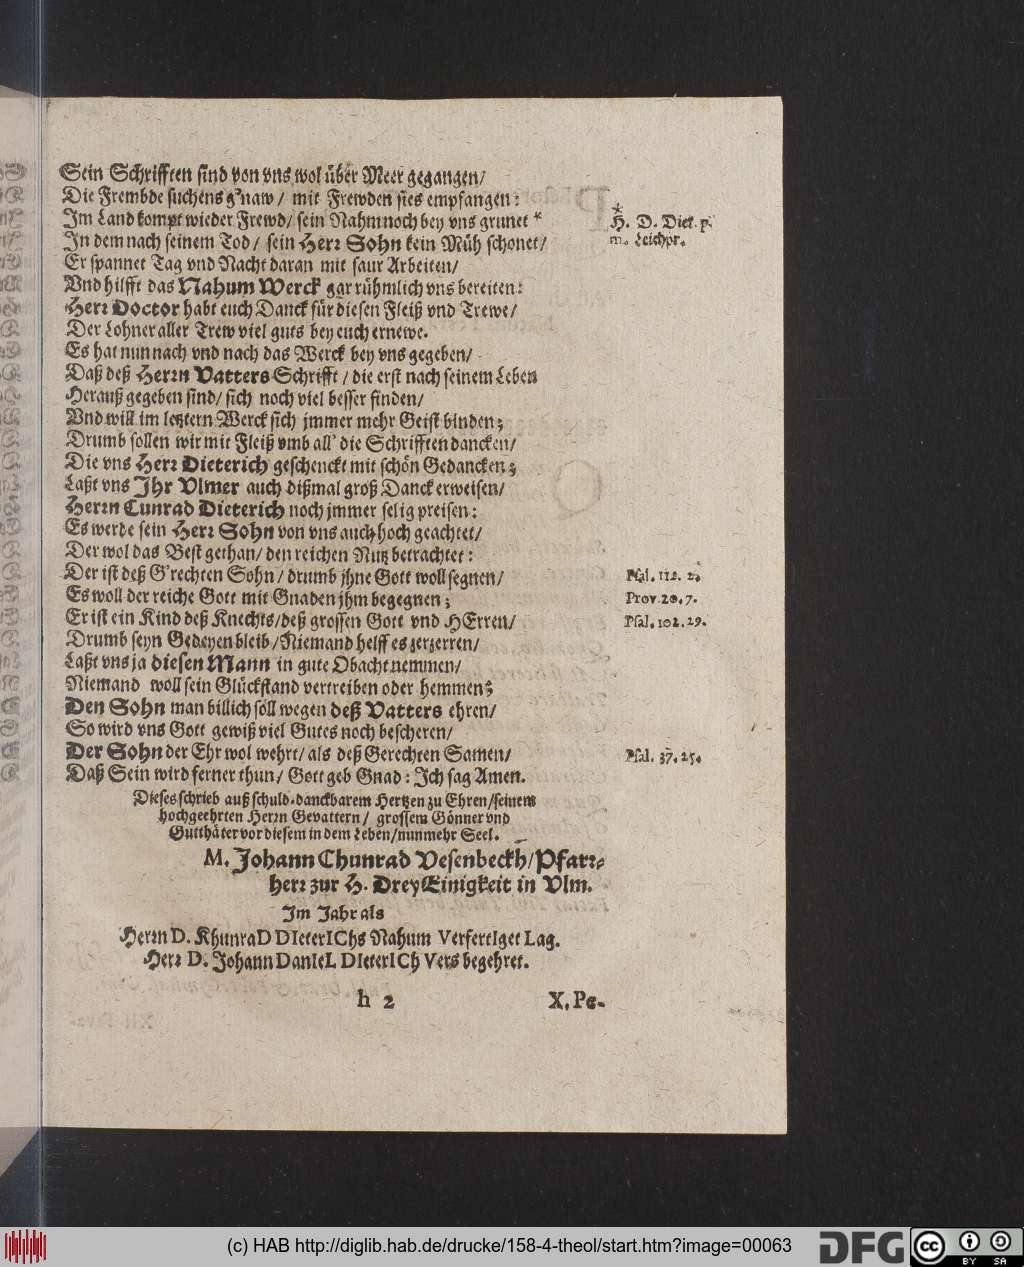 Sein Schrifften sind von vns wol über Meer gegangen/
Die Frembde suchens g'naw/ mit Frewden sies empfangen:
Im Land kompt wieder Frewd/ sein Nahm noch bey vns grunet *
* H. D. Diet. p.
In dem nach seinem Tod/ sein Herr Sohn kein Müh schonet/
m. Leichpr.
Er spannet Tag vnd Nacht daran mit saur Arbeiten/
Vnd hilfft das Nahum Werck gar rühmlich vns bereiten:
Herr Doctor habt euch Danck für diesen Fleiß vnd Trewe/
Der Lohner aller Trew viel guts bey euch ernewe.
Es hat nun nach vnd nach das Werck bey vns gegeben/
Daß deß Herrn Vatters Schrifft/ die erst nach seinem Leben
Herauß gegeben sind/ sich noch viel besser finden/
Vnd will im letztern Werck sich jmmer mehr Geist binden;
Drumb sollen wir mit Fleiß vmb all' die Schrifften dancken/
Die vns Herr Dieterich geschenckt mit schön Gedancken;
Laßt vns Jhr Vlmer auch dißmal groß Danck erweisen/
Herrn Cunrad Dieterich noch jmmer selig preisen:
Es werde sein Herr Sohn von vns auch hoch geachtet/
Der wol das Best gethan/ den reichen Nutz betrachtet:
Der ist deß G'rechten Sohn/ drumb jhne Gott woll segnen/
Psal. 112. 2.
Es woll der reiche Gott mit Gnaden jhm begegnen;
Prov. 20. 7.
Er ist ein Kind deß Knechts/ deß grossen Gott vnd HErren/
Psal. 102. 29.
Drumb seyn Gedeyen bleib/ Niemand helff es zerzerren/
Laßt vns ja diesen Mann in gute Obacht nemmen/
Niemand woll sein Glückstand vertreiben oder hemmen;
Den Sohn man billich soll wegen deß Vatters ehren/
So wird vns Gott gewiß viel Gutes noch bescheren/
Der Sohn der Ehr wol wehrt/ als deß Gerechten Samen/
Psal. 37. 25.
Daß Sein wird ferner thun/ Gott geb Gnad: Jch sag Amen.
Dieses schrieb auß schuld-danckbarem Hertzen zu Ehren/ seinem
hochgeehrten Herrn Gevattern/ grossem Gönner vnd
Gutthäter vor diesem in dem Leben/ nunmehr Seel.
M. Johann Chunrad Vesenbeckh/ Pfarr-
herr zur H. DreyEinigkeit in Vlm.
Im Jahr als
Herrn D. KhunraD DIeterIChs Nahum VerfertIget Lag.
Herr D. Johann DanIeL DIeterICh Vers begehret.
h 2
X. Pe-
(c) HAB http://diglib.hab.de/drucke/158-4-theol/start.htm?image=00063
DFG
cc
BY SA